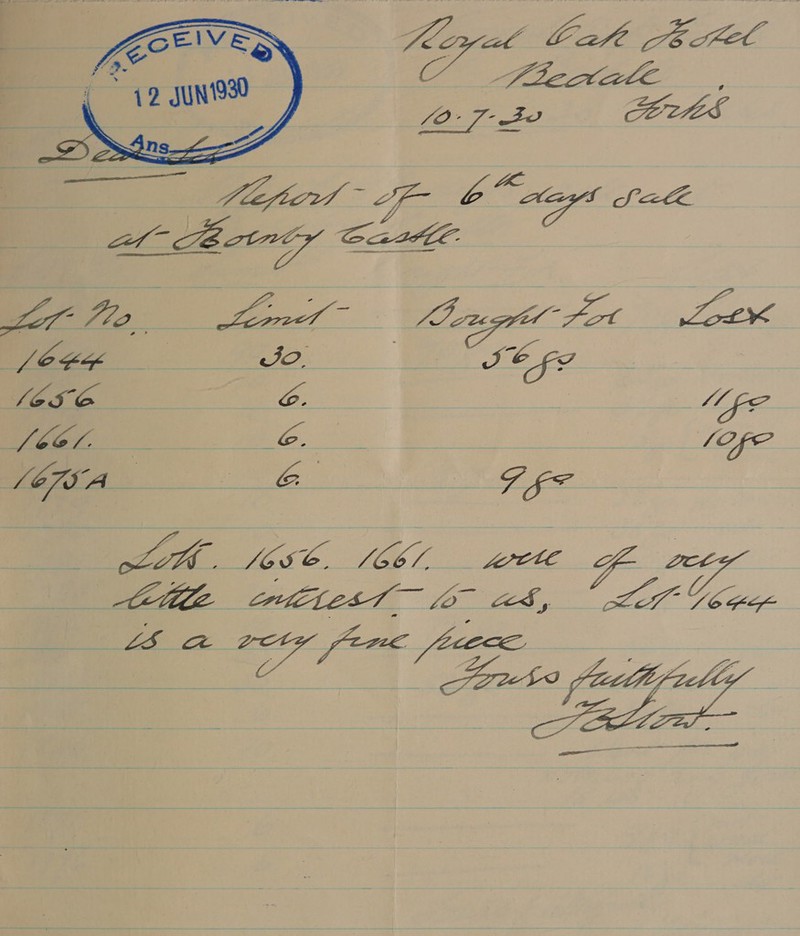 Royal Oak Hotel
Bedale
10.7.30 Yorks
RECEIVED
12 JUN 1930
Ans
Dear Sir
Report of 6th days Sale
at Hornby Castle.
Lot No. Limit Bought For Lost
1644 30. 56 gs
1656 6. 11 gs
1661. 6. 10 gs
1675A 6. 9 gs
Lots. 1656. 1661. were of very
little interest to us, Lot 1644
is a very fine piece
Yours faithfully